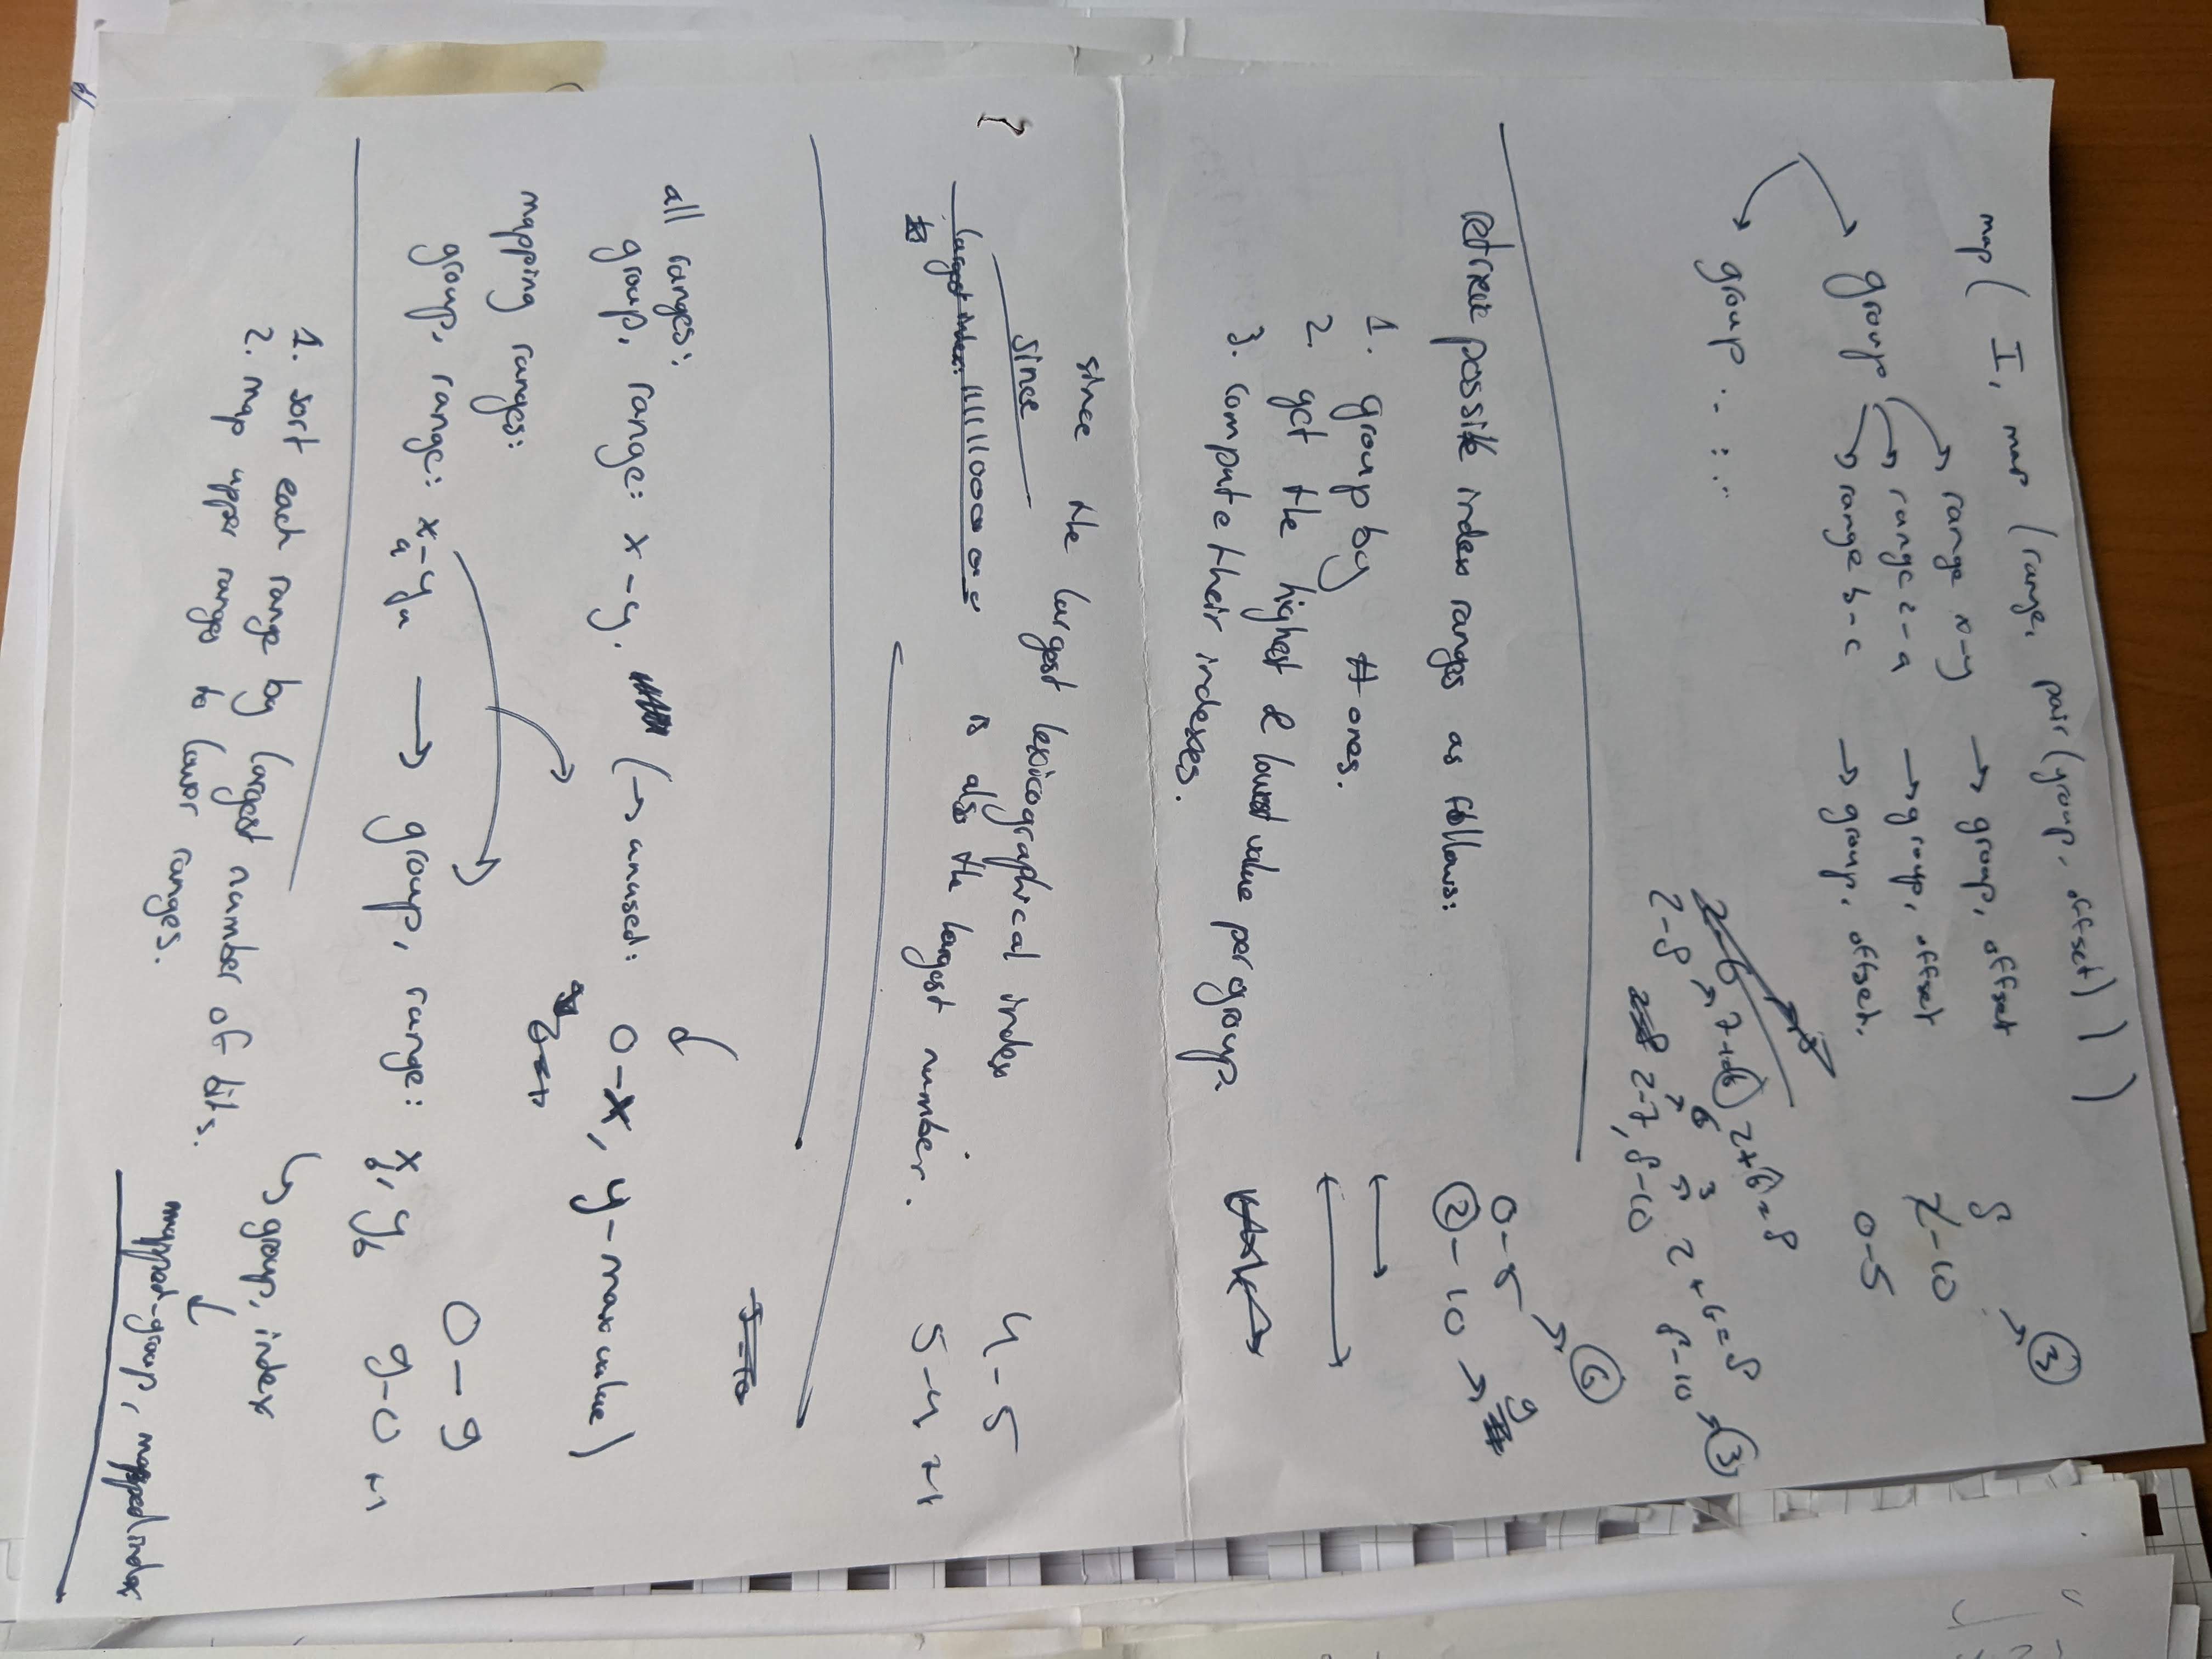 map( I, map (range, pair(group, offset) ) )
group → range x-y → group, offset
→ range z-a → group, offset
→ range b-c → group, offset.
group : . : :.
8
2-10 → 3
0-5
2-8 → 7+6 2+6=8
2-7, 8-10
6 3
2+6=8
8-10 → 3
retrieve possible index ranges as follows:
1. group by # ones.
2. get the highest & lowest value per group.
3. compute their indexes.
0-5 → 6
2-10 → 9
since the largest lexicographical index
since
largest index: 11111100000 is also the largest number.
4-5
5-4 +1
all ranges:
group, range: x-y. (→ unused: 0-x, y-max value)
mapping ranges:
group, range: xa-ya → group, range: xb, yb
0-9
9-0 +1
1. sort each range by largest number of bits.
2. map upper ranges to lower ranges.
↳ group, index
↓
mapped-group, mapped index